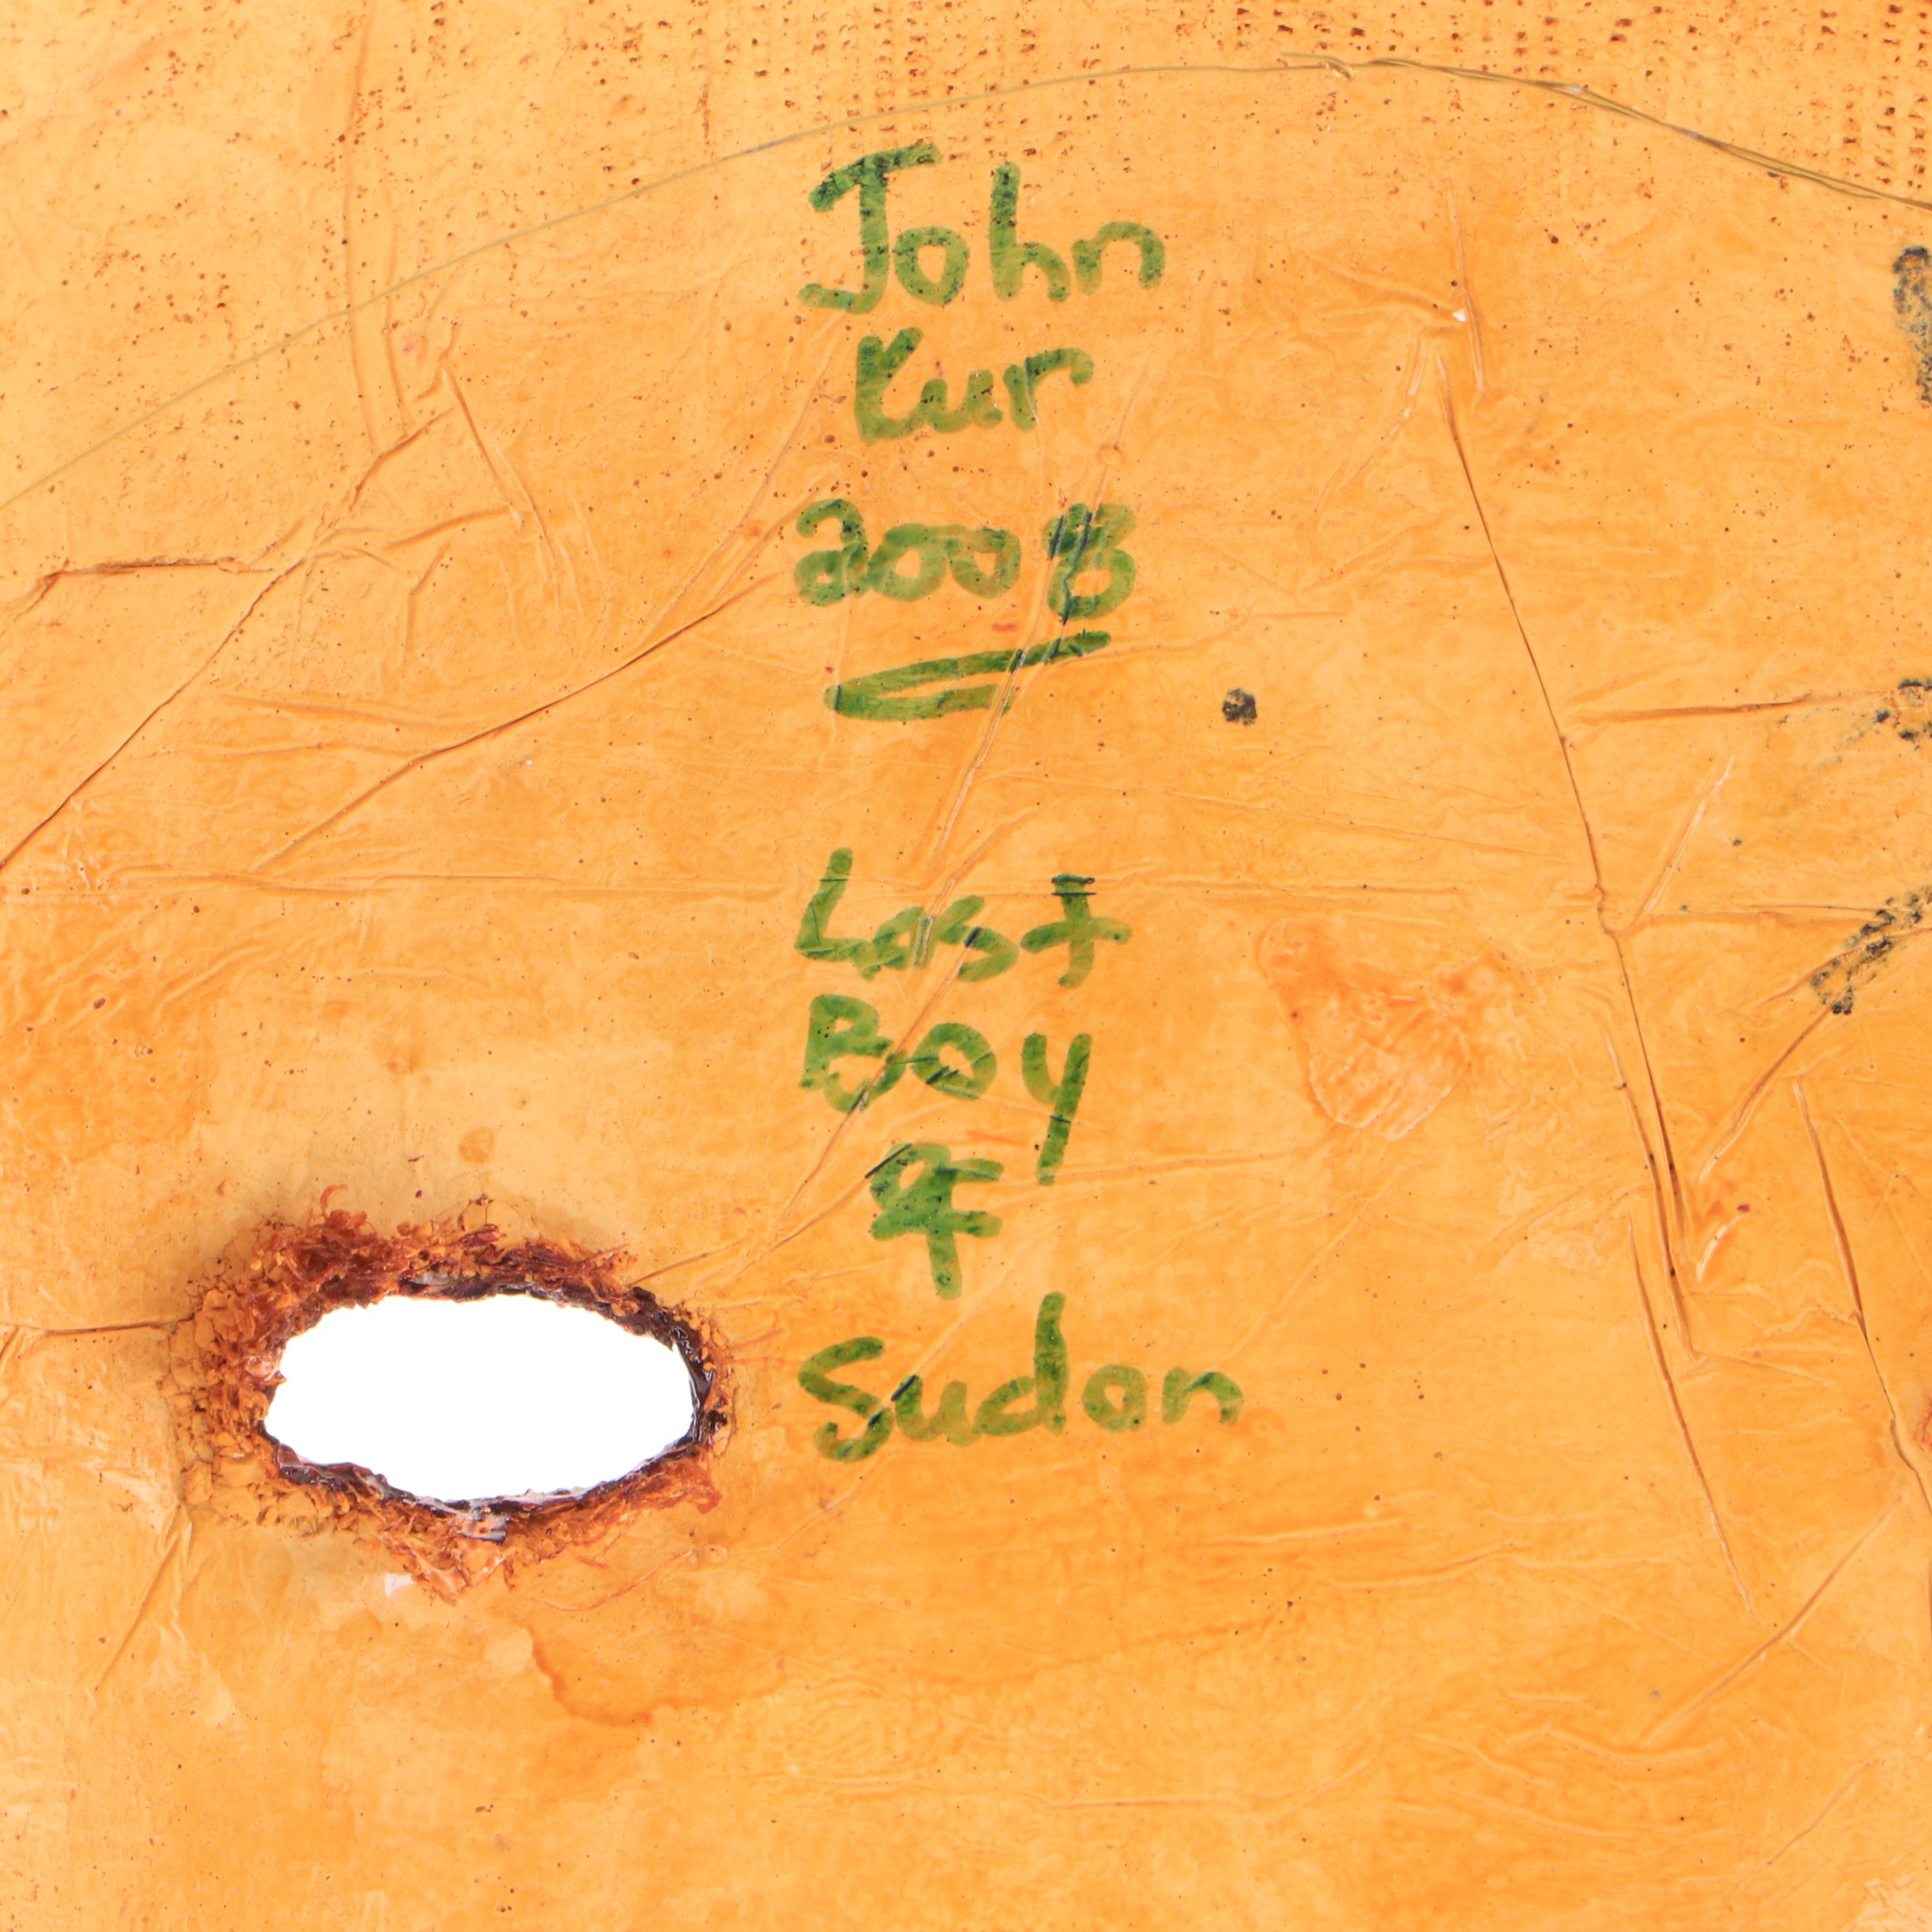 John
Kur
2008
Lost
Boy
of
Sudan